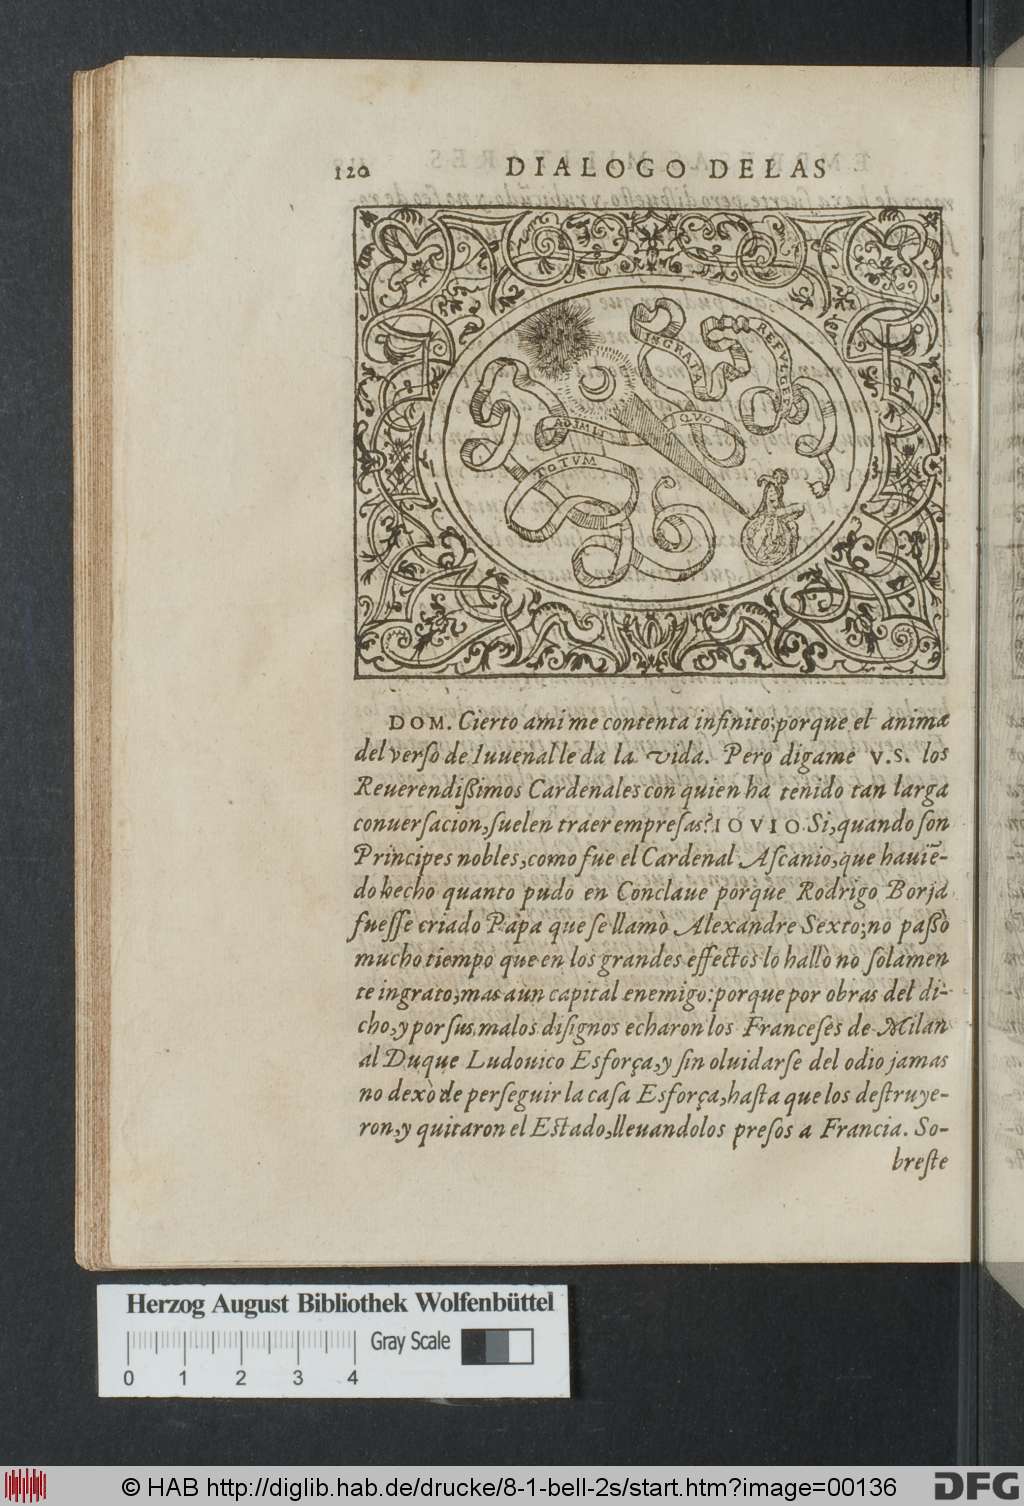 120 DIALOGO DE LAS
TOTVM
ADIMIT
QVO
INGRATA
REFVLGET
DOM. Cierto ami me contenta infinito; porque el anima
del verſo de Iuuenal le da la vida. Pero digame V.S. los
Reuerendißimos Cardenales con quien ha tenido tan larga
conuerſacion, ſuelen traer empreſas? IOVIO. Si, quando ſon
Principes nobles, como fue el Cardenal Aſcanio, que hauiẽ-
do hecho quanto pudo en Conclaue porque Rodrigo Borja
fueſſe criado Papa que ſe llamò Alexandre Sexto; no paßò
mucho tiempo que en los grandes effectos lo hallò no ſolamen
te ingrato, mas aun capital enemigo: porque por obras del di-
cho, y por ſus malos diſignos echaron los Franceſes de Milan
al Duque Ludouico Esforça, y ſin oluidarſe del odio jamas
no dexò de perſeguir la caſa Esforça, haſta que los deſtruye-
ron, y quitaron el Eſtado, lleuandolos preſos a Francia. So-
breſte
Herzog August Bibliothek Wolfenbüttel
0 1 2 3 4 Gray Scale
© HAB http://diglib.hab.de/drucke/8-1-bell-2s/start.htm?image=00136 DFG